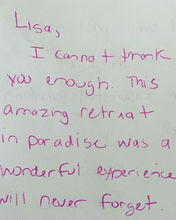 Lisa,
I cannot thank
you enough. This
amazing retreat
in paradise was a
wonderful experience
will never forget.